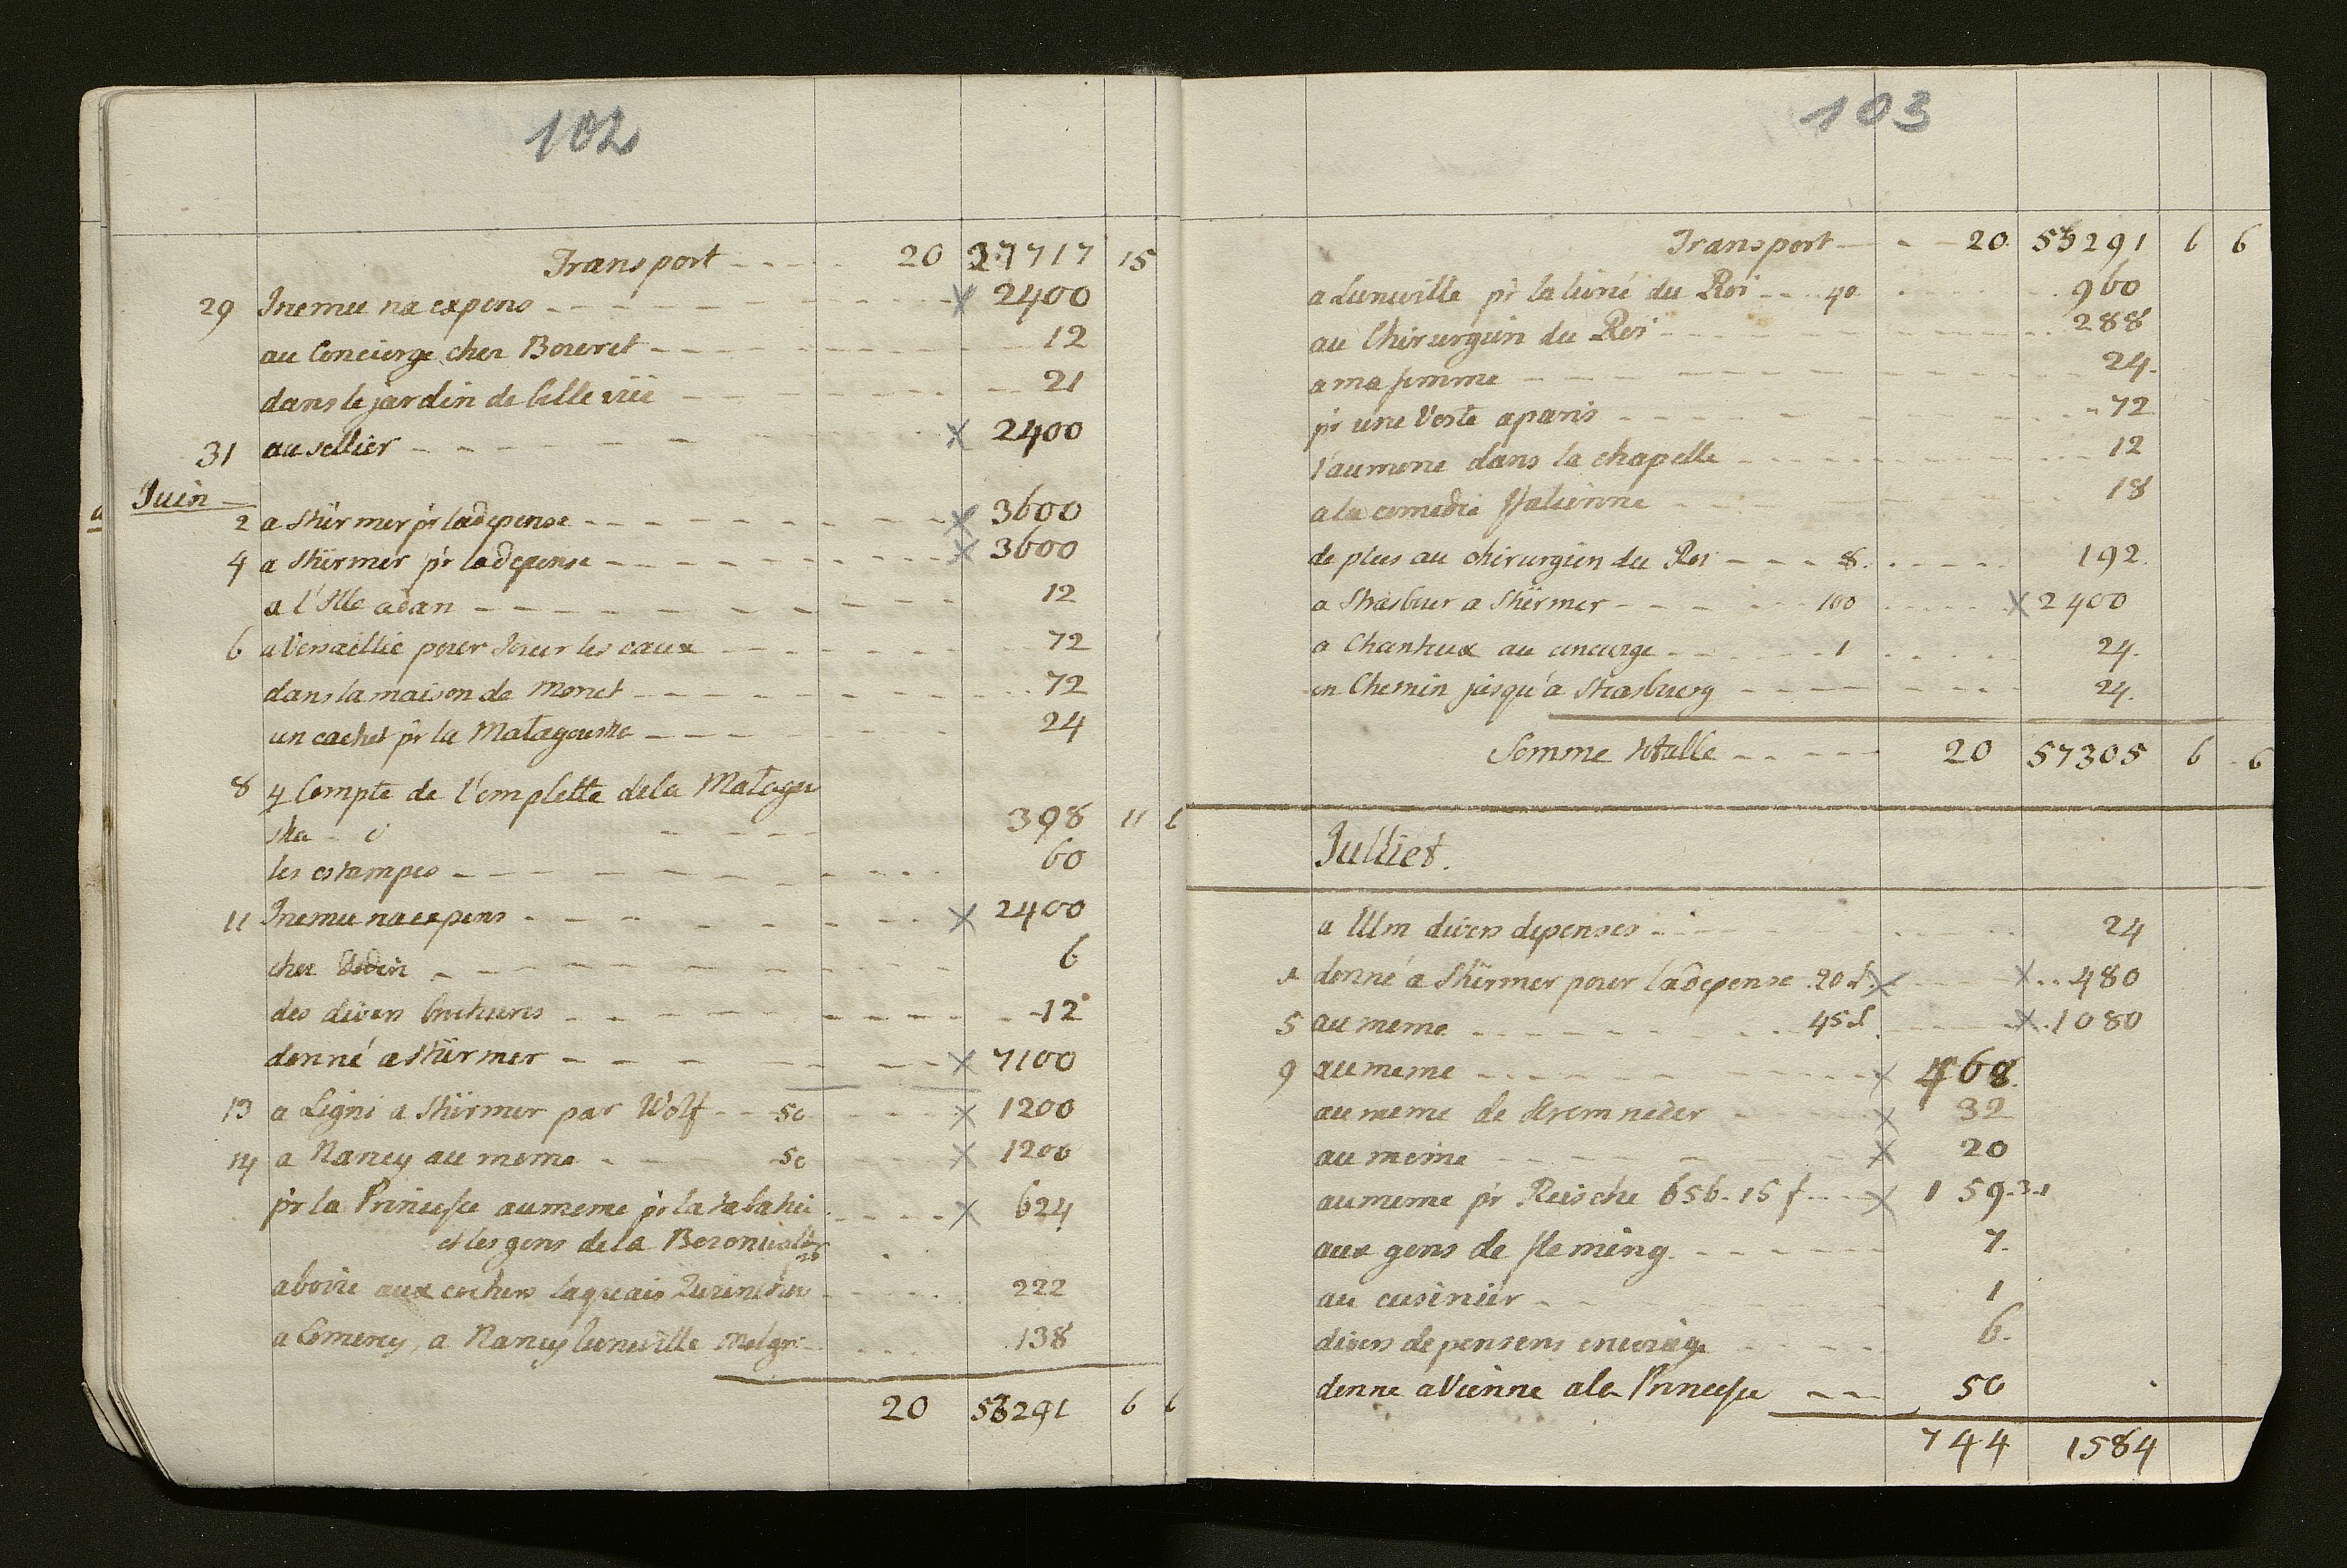 102
Transport 20 27717 15
29 Inemu na expens x 2400
au Concierge chez Boueret 12
dans le jardin de belle vüe 21
31 au sellier x 2400
Juin
2 a Stürmer pr la depense x 3600
4 a Stürmer pr la depense x 3600
a l'Isle adan 12
6 a Versaillie pour les eaux 72
dans la maison de Monet 72
un cachet pr la Matagouska 24
8 4 Compte de l'emplette dela Matagu
ska 398 11 6
les estampes 60
11 Inemu na expens x 2400
chez 6
des divers brchures 12
donné a Stürmer x 7100
13 a Ligni a Stürmer par Wolf 50 x 1200
14 a Nancy au meme 50 x 1200
pr la Princesse au meme pr la x 624
et les gens de la
a boire aux cochers laquais 222
a Comercy, a Nancy Luneville 138
20 53291 6 6
103
Transport 20 53291 6 6
a Luneville pr la livré du Roi 40 960
au Chirurgien du Roi 288
a ma femme 24
pr une Veste a paris 72
l'aumone dans la chapelle 12
a la comedie Italienne 18
de plus au chirurgien du Roi 8 192
a Strasbur a Stürmer 100 x 2400
a Chanteux au concierge 1 24
en Chemin jusqu'a Strasburg 24
Somme totalle 20 57305 6 6
Julliet.
a Ulm divers depenses 24
1 donné a Stürmer pour la depense 20 x x 480
5 au meme 45 x 1080
9 au meme x 468
au meme de x 32
au meme x 20
au meme pr Reische 656.15 f x 159.3.1
aux gens de fleming 7
au cusinier 1
divers depensens 6
donne a Vienne a la Princesse 50
744 1584